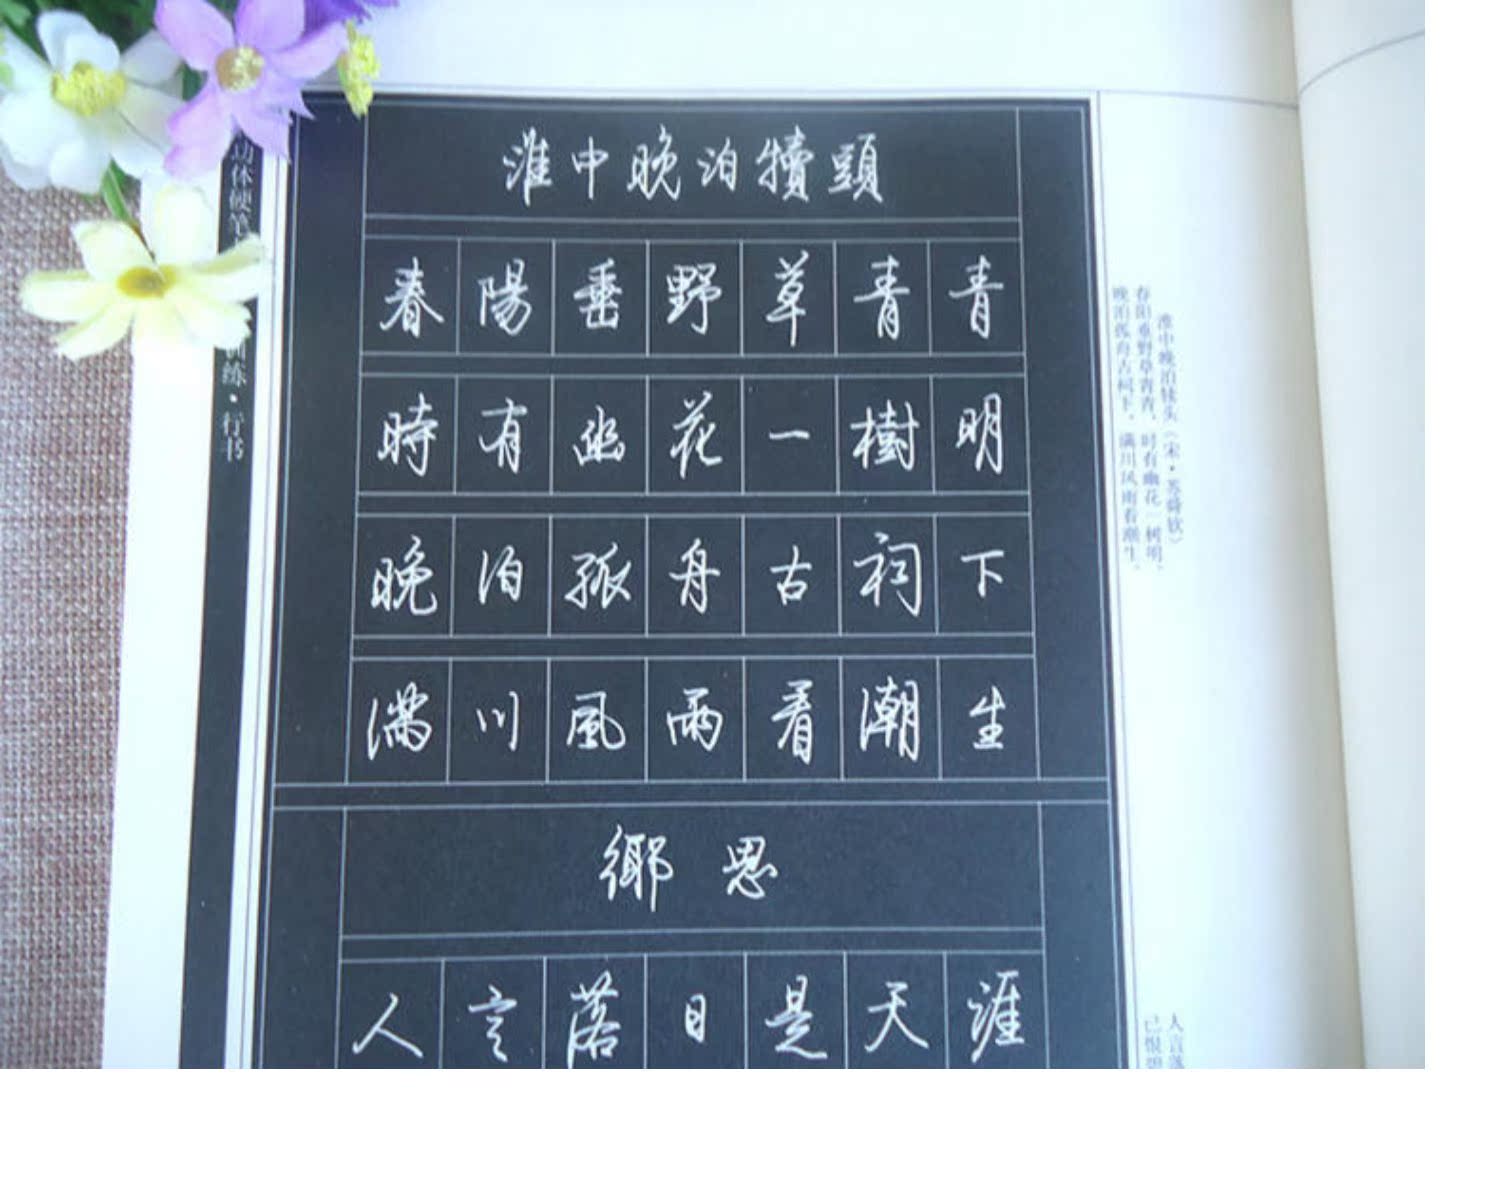 功体硬笔
训练·行书
淮中晚泊犢頭
春陽垂野草青青
時有幽花一樹明
晚泊孤舟古祠下
满川風雨看潮生
鄉思
人言落日是天涯
淮中晚泊犊头（宋·苏舜钦）
春阳垂野草青青，时有幽花一树明。
晚泊孤舟古祠下，满川风雨看潮生。
人言落
已恨碧